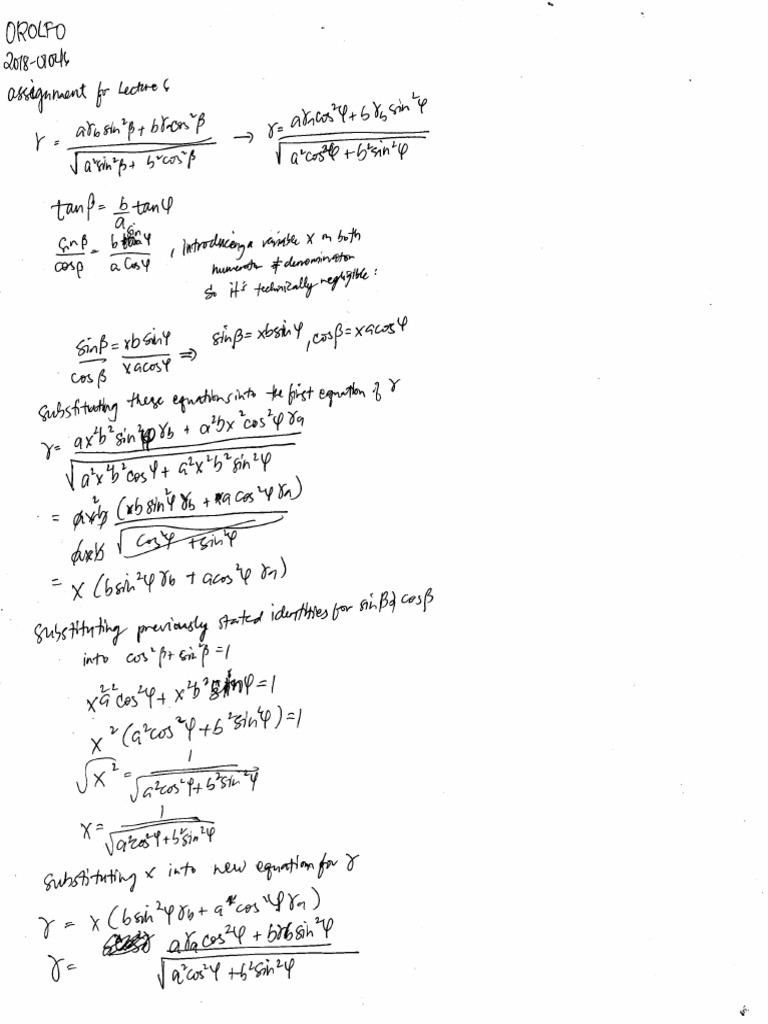 OROLFO
assignment for Lecture 6
γ = aγb sin²β + bγa cos²β / √a²sin²β + b²cos²β → γ = aγa cos²φ + bγb sin²φ / √a²cos²φ + b²sin²φ
tanβ = b/a tanφ
sinβ/cosβ = b sinφ/a cosφ , Introducing a variable x on both
numerator & denominator
so it's technically negligible:
sinβ/cosβ = xb sinφ/xa cosφ ⇒ sinβ = xb sinφ, cosβ = xa cosφ
substituting these equations into the first equation of γ
γ = ax²b² sin²φ γb + a²bx² cos²φ γa / √a²x²b² cosφ + a²x²b² sin²φ
= ax²b (b sin²φ γb + a cos²φ γa) / axb √cos²φ + sin²φ
= x (b sin²φ γb + a cos²φ γa)
substituting previously stated identities for sinβ & cosβ
into cos²β + sin²β = 1
x²a²cos²φ + x²b² sin²φ = 1
x² (a²cos²φ + b²sin²φ) = 1
√x² = 1 / √a²cos²φ + b²sin²φ
x = 1 / √a²cos²φ + b²sin²φ
substituting x into new equation for γ
γ = x (b sin²φ γb + a cos²φ γa)
γ = aγa cos²φ + bγb sin²φ / √a²cos²φ + b²sin²φ